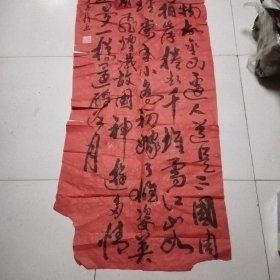 物故壘西邊人道是三國周
拍岸捲起千堆雪江山如
瑾當年小喬初嫁了雄姿英
飛煙滅故國神遊多情
一樽還酹江月